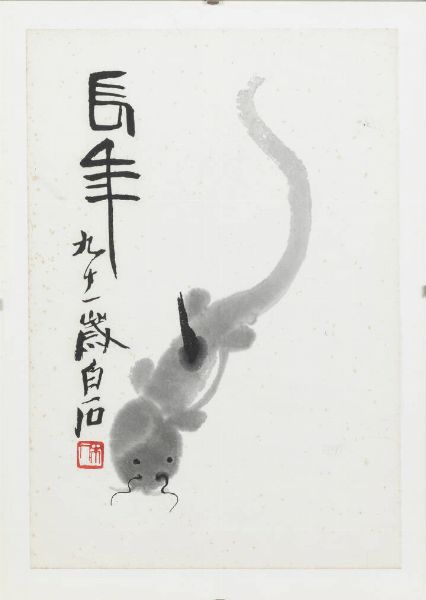 長年
九十一歲白石